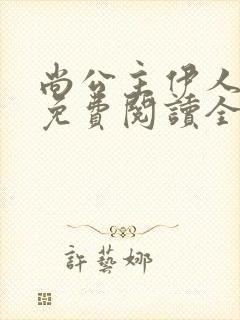 尚公主伊人
免費閱讀全
許藝娜